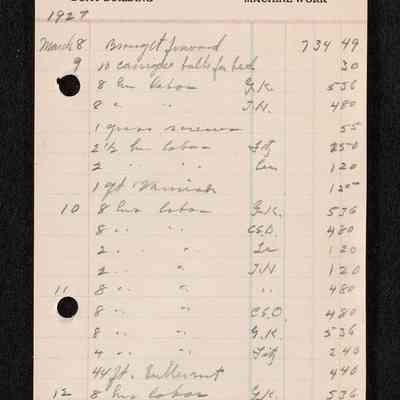 BOAT BUILDING MACHINE WORK
1927
March 8 Brought forward 734 49
9 10 carriage bolts for bed 30
8 hrs labor G.K. 536
8 " " T.N. 480
1 gross screws 55
2 1/2 hrs labor Fitz 150
2 " " " Lee 120
1 qt. Varnish 1 20
10 8 hrs labor G.K. 536
8 " " C.S.O. 480
2 " " Le 120
2 " " T.N 120
11 8 " " " 480
8 " " C.S.O. 480
8 " " G.K. 536
4 " " Fitz 240
44 ft. Butternut 440
12 8 hrs labor G.K. 536